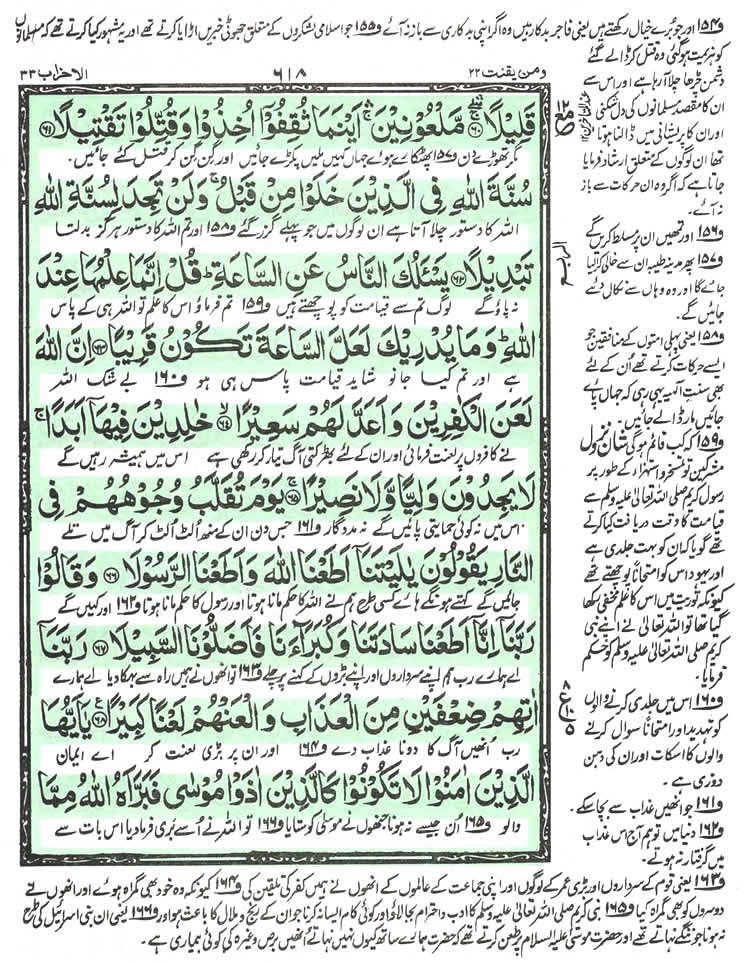 و۱۵۴ اور جو بُرے خیال رکھتے ہیں یعنی فاجر بدکار ہیں وہ اگر اپنی بدکاری سے باز نہ آئے و۱۵۵ جو اسلامی لشکروں کے متعلق جھوٹی خبریں اڑایا کرتے تھے اور یہ مشہور کیا کرتے تھے کہ مسلمانوں
کو ہزیمت ہوگئی وہ قتل کر ڈالے گئے
دشمن چڑھا چلا آرہا ہے اور اس سے
ان کا مقصد مسلمانوں کی دل شکنی
اور ان کا پریشانی میں ڈالنا ہوتا
تھا ان لوگوں کے متعلق ارشاد فرمایا
جاتا ہے کہ اگر وہ ان حرکات سے باز
نہ آئے۔
و۱۵۶ اور تمھیں ان پر مسلط کریں گے
و۱۵۷ پھر مدینہ طیبہ ان سے خالی کرالیا
جائے گا اور وہ وہاں سے نکال دئے
جائیں گے۔
و۱۵۸ یعنی پہلی امتوں کے منافقین جو
ایسے حرکات کرتے تھے اُن کے لئے
بھی سنت الٰہیہ یہی رہی کہ جہاں پائے
جائیں مار ڈالے جائیں۔
و۱۵۹ کہ کب قائم ہوگی شانِ نزول
مشرکین تو تمسخر و استہزاء کے طور پر
رسول کریم صلی اللہ تعالیٰ علیہ وسلم سے
قیامت کا وقت دریافت کیا کرتے
تھے گویا کہ ان کو بہت جلدی ہے
اور یہود اس کو امتحاناً پوچھتے تھے
کیونکہ توریت میں اس کا علم مخفی رکھا
گیا تھا تو اللہ تعالیٰ نے اپنے نبی
کریم صلی اللہ تعالیٰ علیہ وسلم کو حکم
فرمایا۔
و۱۶۰ اس میں جلدی کرنے والوں
کو تہدید اور امتحاناً سوال کرنے
والوں کا اسکات اور ان کی دہن
دوزی ہے۔
و۱۶۱ جو انھیں عذاب سے بچا سکے۔
و۱۶۲ دنیا میں تو ہم آج اس عذاب
میں گرفتار نہ ہوتے۔
الاحزاب ۳۳
۶۱۸
ومن یقنت ۲۲
قَلِيْلًا ۶۰ مَّلْعُوْنِيْنَ ۚۛ اَيْنَمَا ثُقِفُوْٓا اُخِذُوْا وَقُتِّلُوْا تَقْتِيْلًا ۶۱
مگر تھوڑے دن و۱۵۷ پھٹکارے ہوئے جہاں کہیں ملیں پکڑے جائیں اور گن گن کر قتل کئے جائیں۔
سُنَّةَ اللّٰهِ فِي الَّذِيْنَ خَلَوْا مِنْ قَبْلُ ۚ وَلَنْ تَجِدَ لِسُنَّةِ اللّٰهِ
اللہ کا دستور چلا آتا ہے ان لوگوں میں جو پہلے گزر گئے و۱۵۸ اور تم اللہ کا دستور ہرگز بدلتا
تَبْدِيْلًا ۶۲ يَسْـَٔلُكَ النَّاسُ عَنِ السَّاعَةِ ؕ قُلْ اِنَّمَا عِلْمُهَا عِنْدَ
نہ پاؤ گے لوگ تم سے قیامت کو پوچھتے ہیں و۱۵۹ تم فرماؤ اس کا علم تو اللہ ہی کے پاس
اللّٰهِ ؕ وَمَا يُدْرِيْكَ لَعَلَّ السَّاعَةَ تَكُوْنُ قَرِيْبًا ۶۳ اِنَّ اللّٰهَ
ہے اور تم کیا جانو شاید قیامت پاس ہی ہو و۱۶۰ بے شک اللہ
لَعَنَ الْكٰفِرِيْنَ وَاَعَدَّ لَهُمْ سَعِيْرًا ۶۴ خٰلِدِيْنَ فِيْهَآ اَبَدًا ۚ
نے کافروں پر لعنت فرمائی اور ان کے لئے بھڑکتی آگ تیار کر رکھی ہے اس میں ہمیشہ رہیں گے
لَا يَجِدُوْنَ وَلِيًّا وَّلَا نَصِيْرًا ۶۵ يَوْمَ تُقَلَّبُ وُجُوْهُهُمْ فِي
اس میں نہ کوئی حمایتی پائیں گے نہ مددگار و۱۶۱ جس دن ان کے منھ الٹ الٹ کر آگ میں تلے
النَّارِ يَقُوْلُوْنَ يٰلَيْتَنَآ اَطَعْنَا اللّٰهَ وَاَطَعْنَا الرَّسُوْلَا ۶۶ وَقَالُوْا
جائیں گے کہتے ہونگے ہائے کسی طرح ہم نے اللہ کا حکم مانا ہوتا اور رسول کا حکم مانا ہوتا و۱۶۲ اور کہیں گے
رَبَّنَآ اِنَّآ اَطَعْنَا سَادَتَنَا وَكُبَرَآءَنَا فَاَضَلُّوْنَا السَّبِيْلَا ۶۷ رَبَّنَآ
اے ہمارے رب ہم اپنے سرداروں اور اپنے بڑوں کے کہنے پر چلے و۱۶۳ تو انھوں نے ہمیں راہ سے بہکا دیا اے ہمارے
اٰتِهِمْ ضِعْفَيْنِ مِنَ الْعَذَابِ وَالْعَنْهُمْ لَعْنًا كَبِيْرًا ۶۸ يٰٓاَيُّهَا
رب انھیں آگ کا دونا عذاب دے و۱۶۴ اور ان پر بڑی لعنت کر اے ایمان
الَّذِيْنَ اٰمَنُوْا لَا تَكُوْنُوْا كَالَّذِيْنَ اٰذَوْا مُوْسٰى فَبَرَّاَهُ اللّٰهُ مِمَّا
والو و۱۶۵ اُن جیسے نہ ہونا جنھوں نے موسیٰ کو ستایا و۱۶۶ تو اللہ نے اُسے بَری فرما دیا اس بات سے
و۱۶۳ یعنی قوم کے سرداروں اور بڑی عمر کے لوگوں اور اپنی جماعت کے عالموں کے انھوں نے ہمیں کفر کی تلقین کی و۱۶۴ کیونکہ وہ خود بھی گمراہ ہوئے اور انھوں نے
دوسروں کو بھی گمراہ کیا و۱۶۵ نبی کریم صلی اللہ تعالیٰ علیہ وسلم کا ادب و احترام بجا لاؤ اور کوئی کام ایسا نہ کرنا جو ان کے رنج و ملال کا باعث ہو اور و۱۶۶ یعنی ان بنی اسرائیل کی طرح
نہ ہونا جو ننگے نہاتے تھے اور حضرت موسیٰ علیہ السلام پر طعن کرتے تھے کہ حضرت ہمارے ساتھ کیوں نہیں نہاتے اُنھیں برص وغیرہ کی کوئی بیماری ہے۔